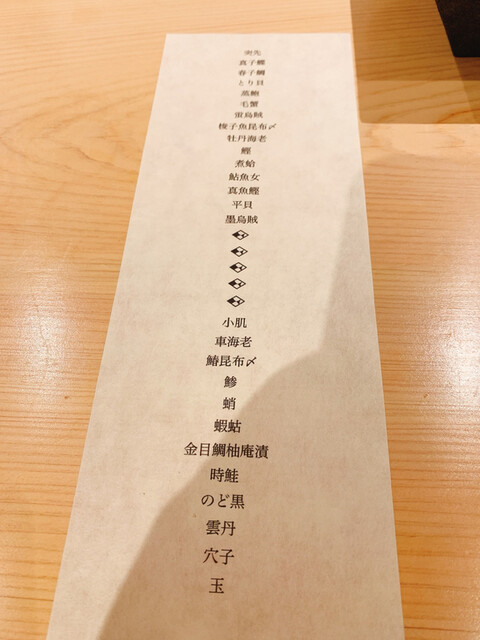 突先
真子鰈
春子鯛
とり貝
蒸鮑
毛蟹
蛍烏賊
梭子魚昆布〆
牡丹海老
鰹
煮蛤
鮎魚女
真魚鰹
平貝
墨烏賊
小肌
車海老
鰆昆布〆
鯵
蛸
蝦蛄
金目鯛柚庵漬
時鮭
のど黒
雲丹
穴子
玉